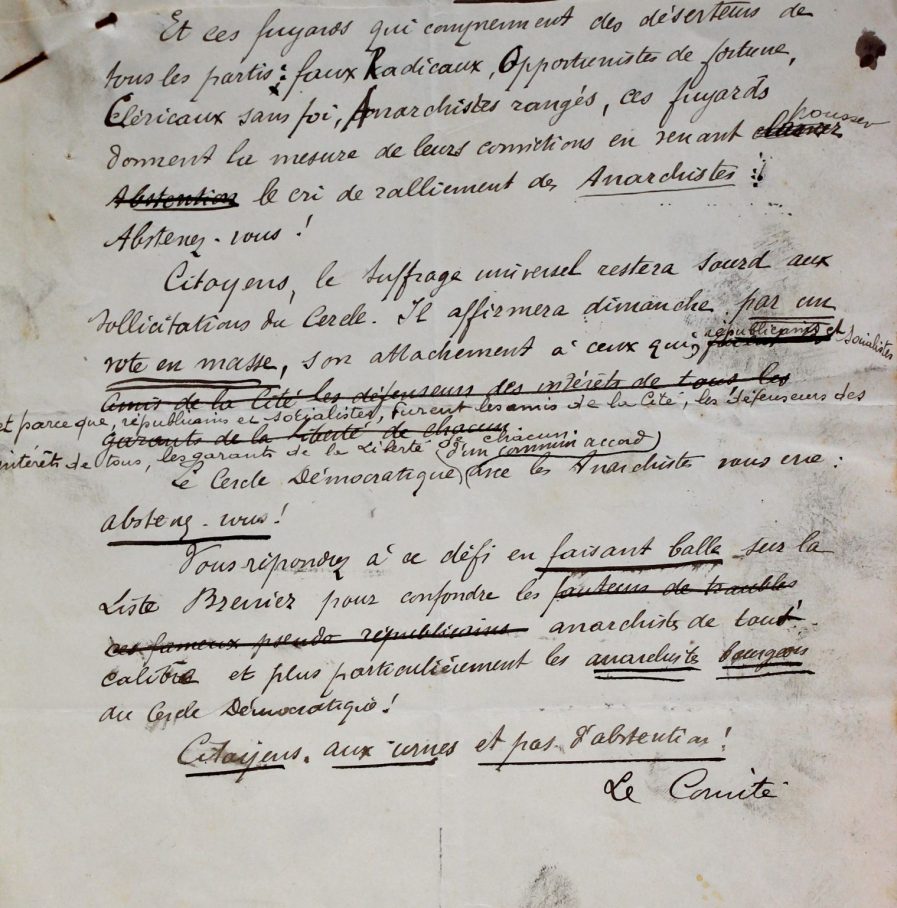 Et ces fuyards qui comprennent des déserteurs de
tous les partis : faux Radicaux, Opportunistes de fortune,
Cléricaux sans foi, Anarchistes rangés, ces fuyards
pousser
donnent la mesure de leurs convictions en venant
Abstention le cri de ralliement des Anarchistes :
Abstenez-vous !
Citoyens, le Suffrage universel restera sourd aux
sollicitations du Cercle. Il affirmera dimanche par un
républicains et socialistes
vote en masse, son attachement à ceux qui,
amis de la Cité les défenseurs des intérêts de tous les
et parce que, républicains et socialistes, furent les amis de la Cité, les défenseurs des
garants de la liberté de chacun
intérêts de tous, les garants de la Liberté de chacun
(d'un commun accord)
Le Cercle Démocratique avec les Anarchistes vous crie :
abstenez-vous !
Vous répondrez à ce défi en faisant balle sur la
Liste Brenier pour confondre les fauteurs de troubles
ces fameux pseudo républicains anarchistes de tout
calibre et plus particulièrement les anarchiste bourgeois
du Cercle Démocratique !
Citoyens, aux urnes et pas d'abstention !
Le Comité